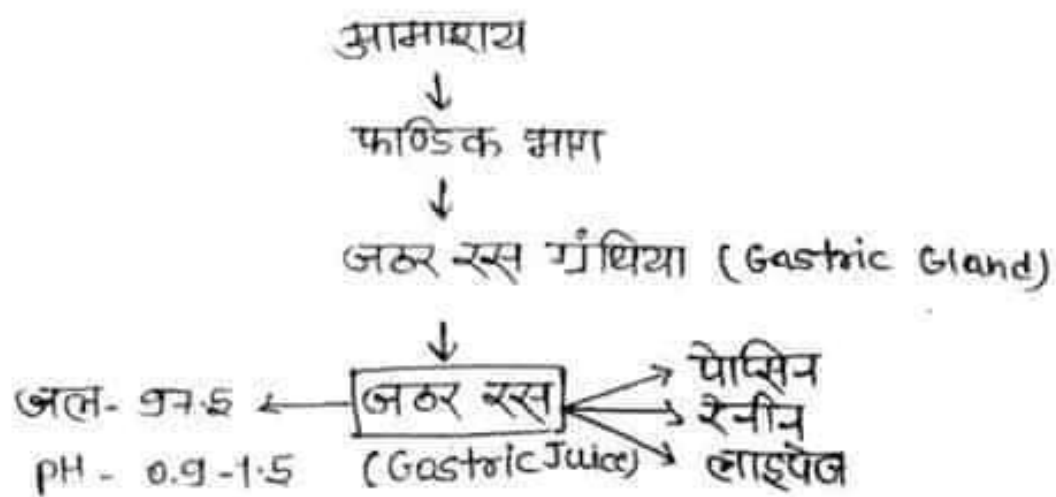 आमाशय
↓
फण्डिक भाग
↓
जठर रस ग्रंथिया (Gastric Gland)
↓
जल- 97.5 ← जठर रस → पेप्सिन
→ रेनीन
pH - 0.9-1.5 (Gastric Juice) → लाइपेज